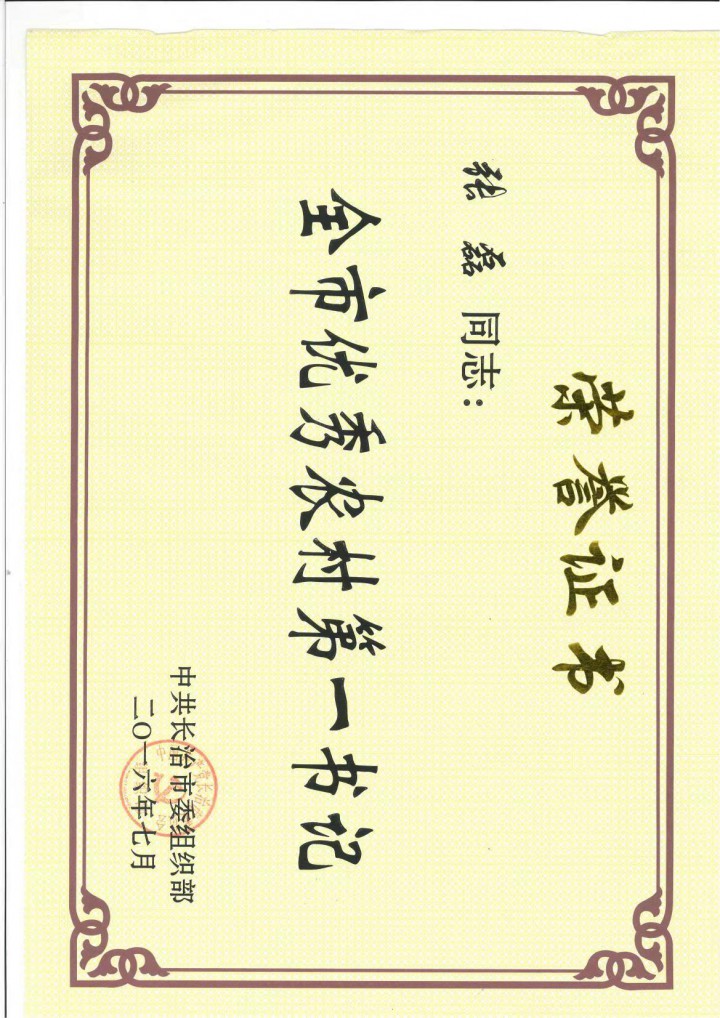 荣誉证书
张磊同志：
全市优秀农村第一书记
中共长治市委组织部
二〇一六年七月